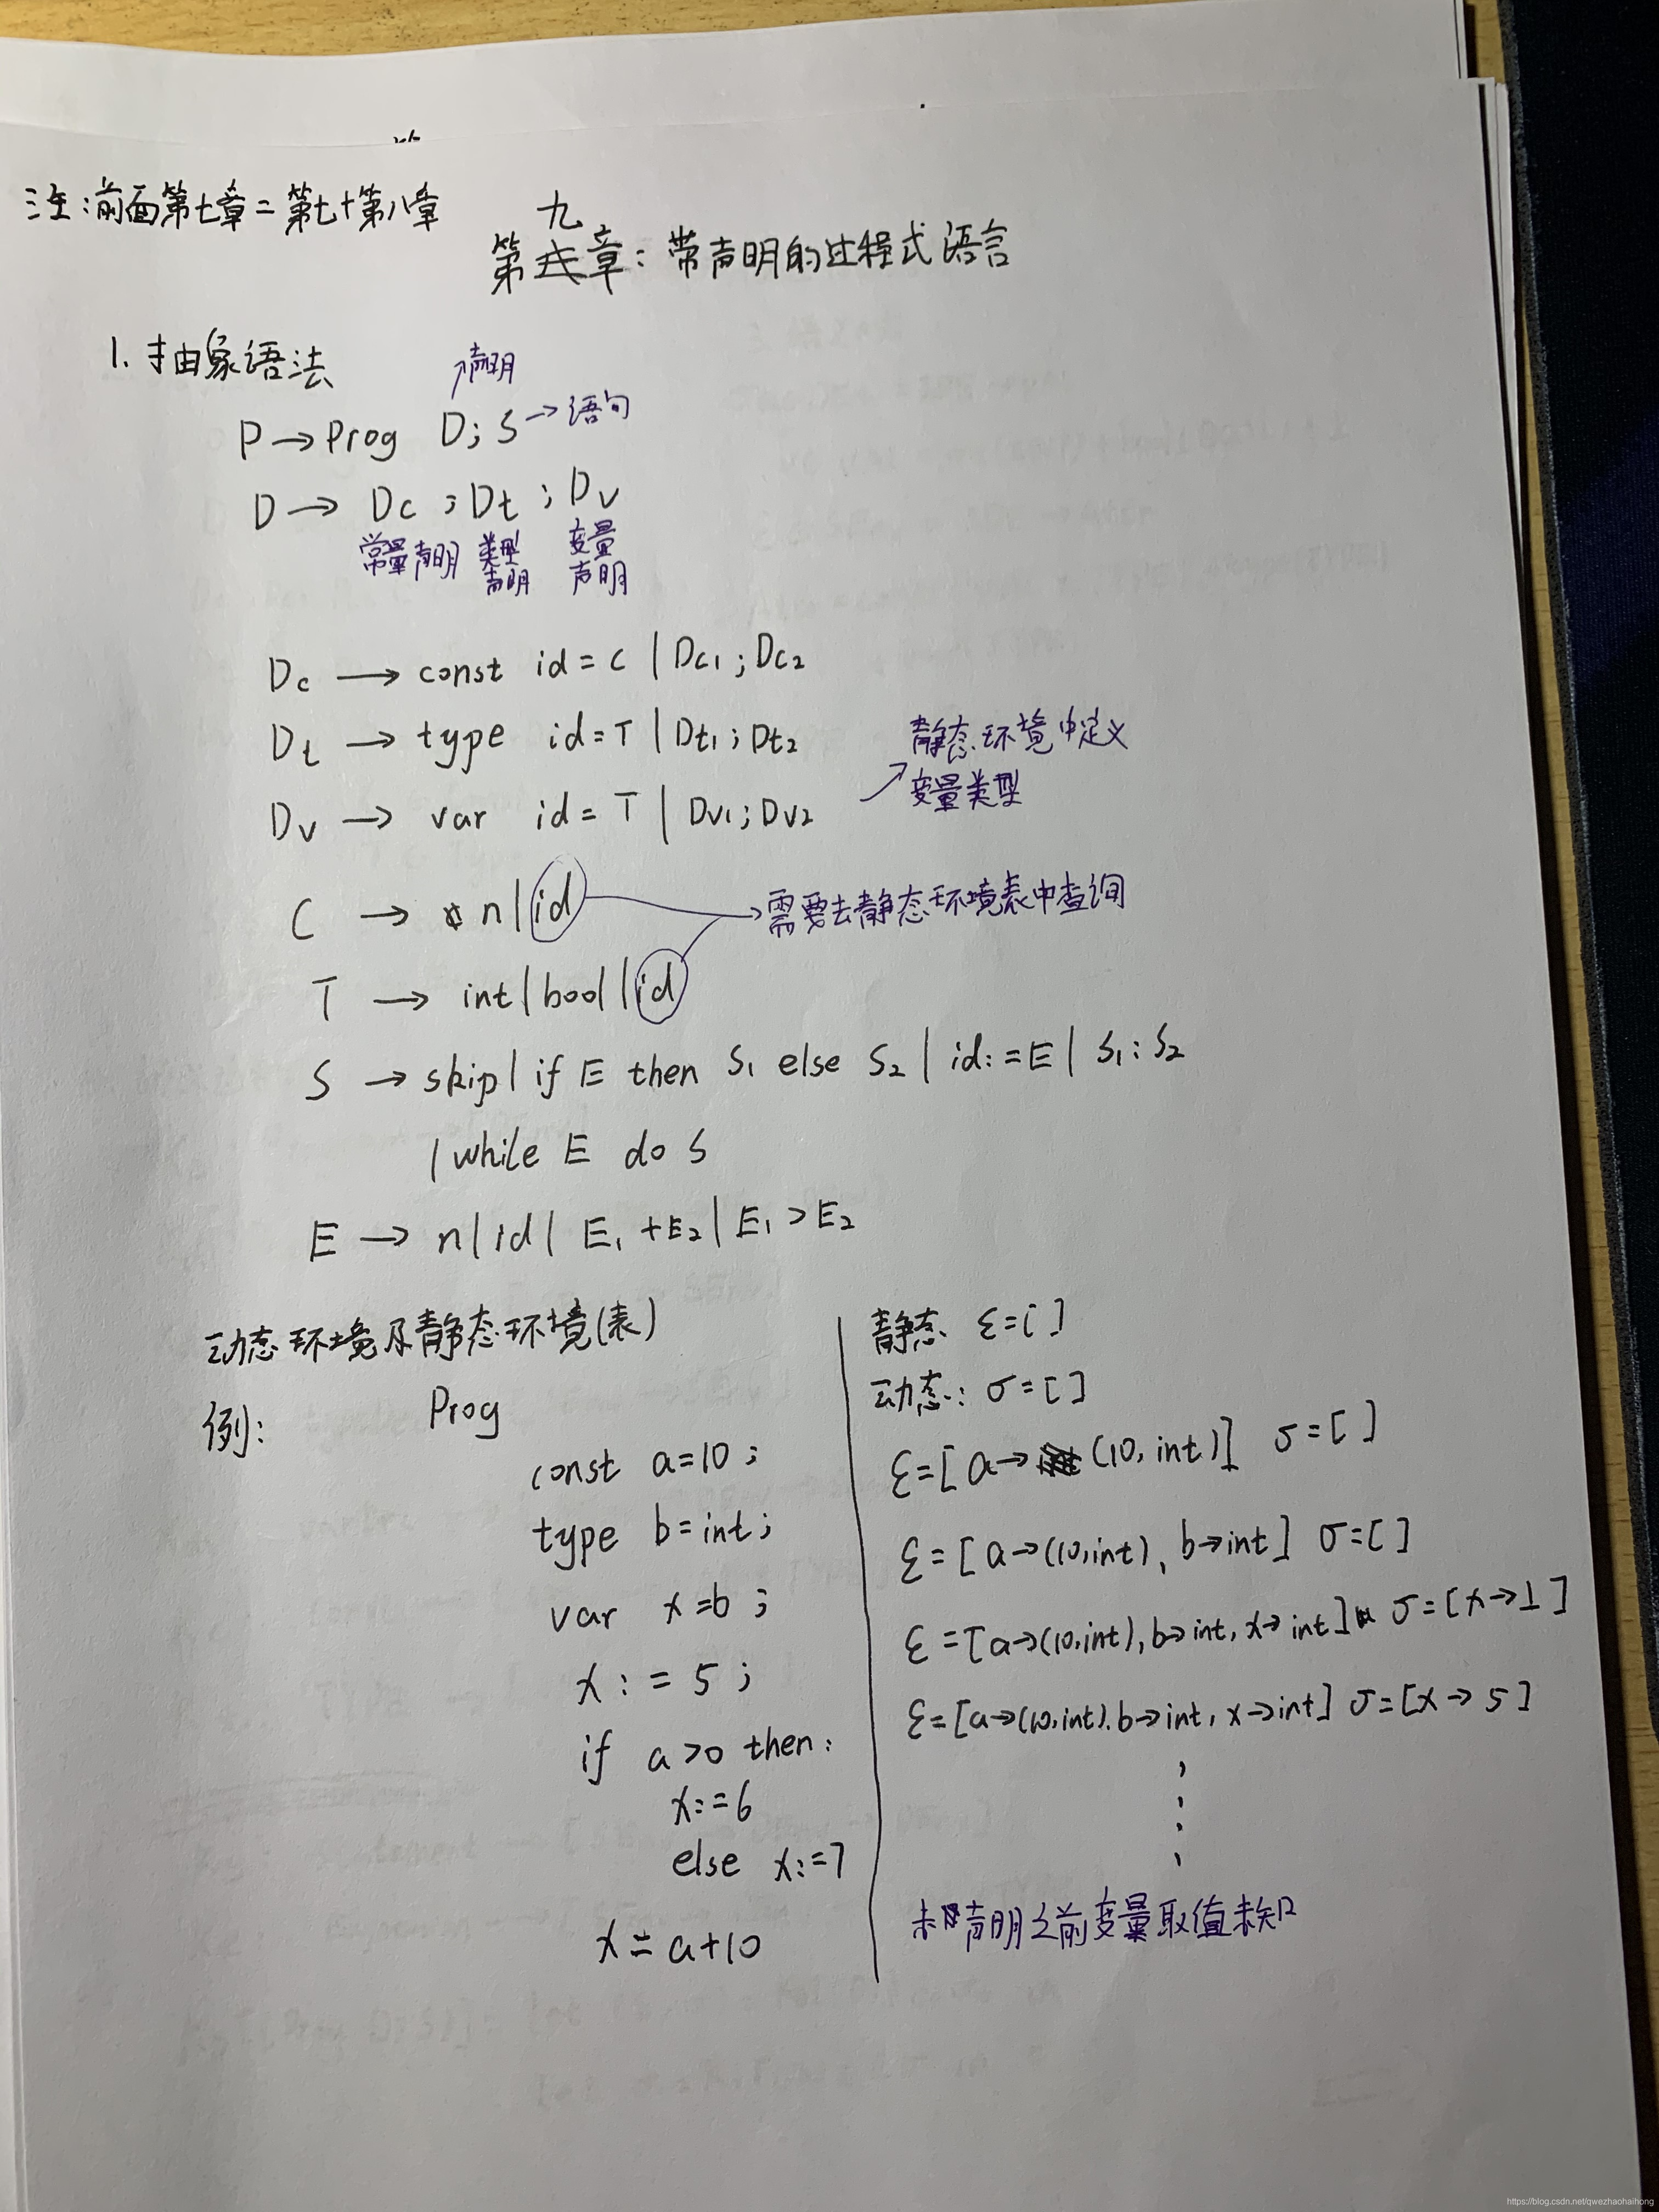 注:前面第七章=第七+第八章
第九章:带声明的过程式语言
1. 抽象语法
↗声明
P → Prog D; S → 语句
D → Dc ; Dt ; Dv
常量声明 类型声明 变量声明
Dc → const id = c | Dc1 ; Dc2
Dt → type id = T | Dt1 ; Dt2
Dv → var id = T | Dv1 ; Dv2
↗静态环境中定义
变量类型
C → n | id
→需要去静态环境表中查询
T → int | bool | id
S → skip | if E then S1 else S2 | id := E | S1 : S2
| while E do S
E → n | id | E1 + E2 | E1 > E2
动态环境及静态环境(表)
例:
Prog
const a=10 ;
type b=int ;
var x=b ;
x := 5 ;
if a>0 then :
x:=6
else x:=7
x = a+10
静态 ε=[ ]
动态: σ=[ ]
ε=[ a→(10, int)] σ=[ ]
ε=[ a→(10,int), b→int ] σ=[ ]
ε=[a→(10,int), b→int, x→int] σ=[x→⊥]
ε=[a→(10,int), b→int, x→int] σ=[x→5]
未声明之前变量取值未知
https://blog.csdn.net/qwezhaohaihong